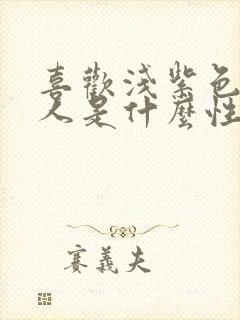 喜歡淺紫色
人是什麼性
賽義夫